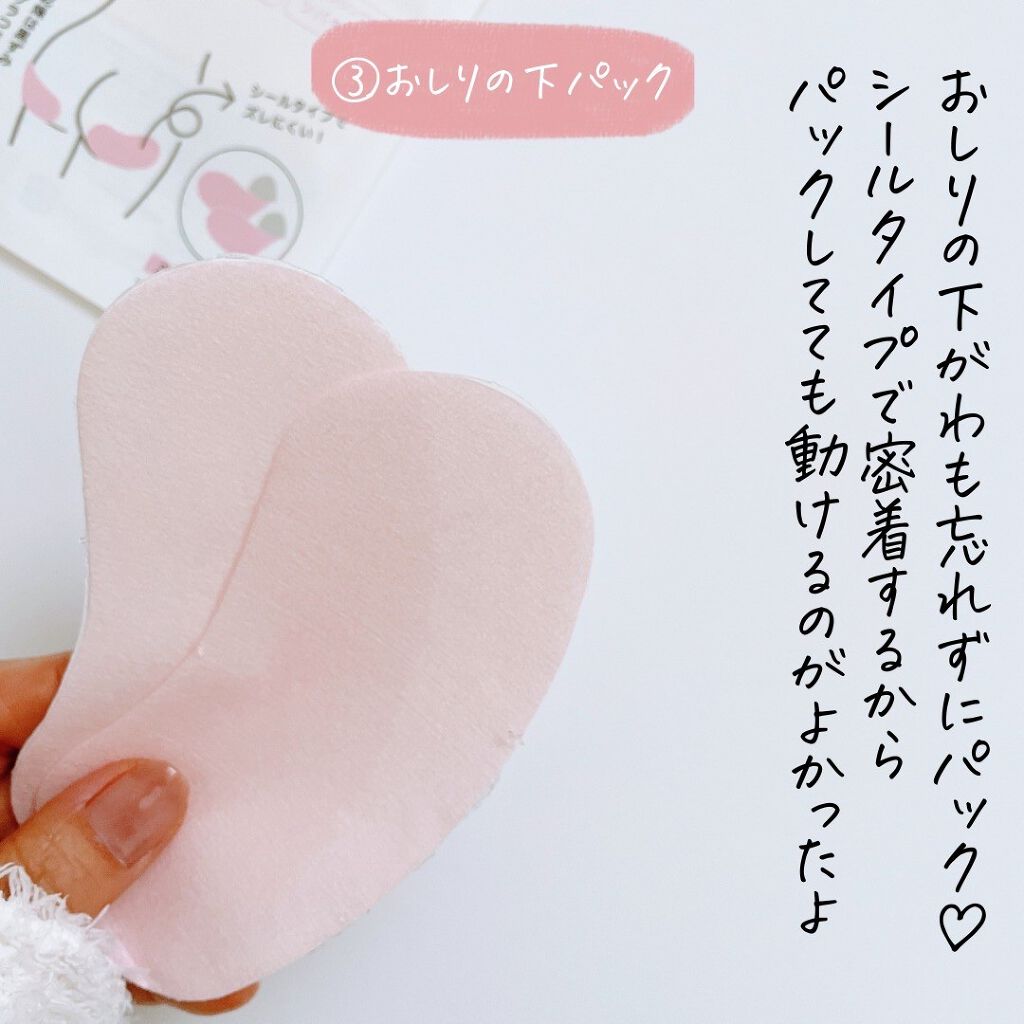 ③おしりの下パック
おしりの下がわも忘れずにパック♡
シールタイプで密着するから
パックしてても動けるのがよかったよ
シールタイプで
ズレにくい！